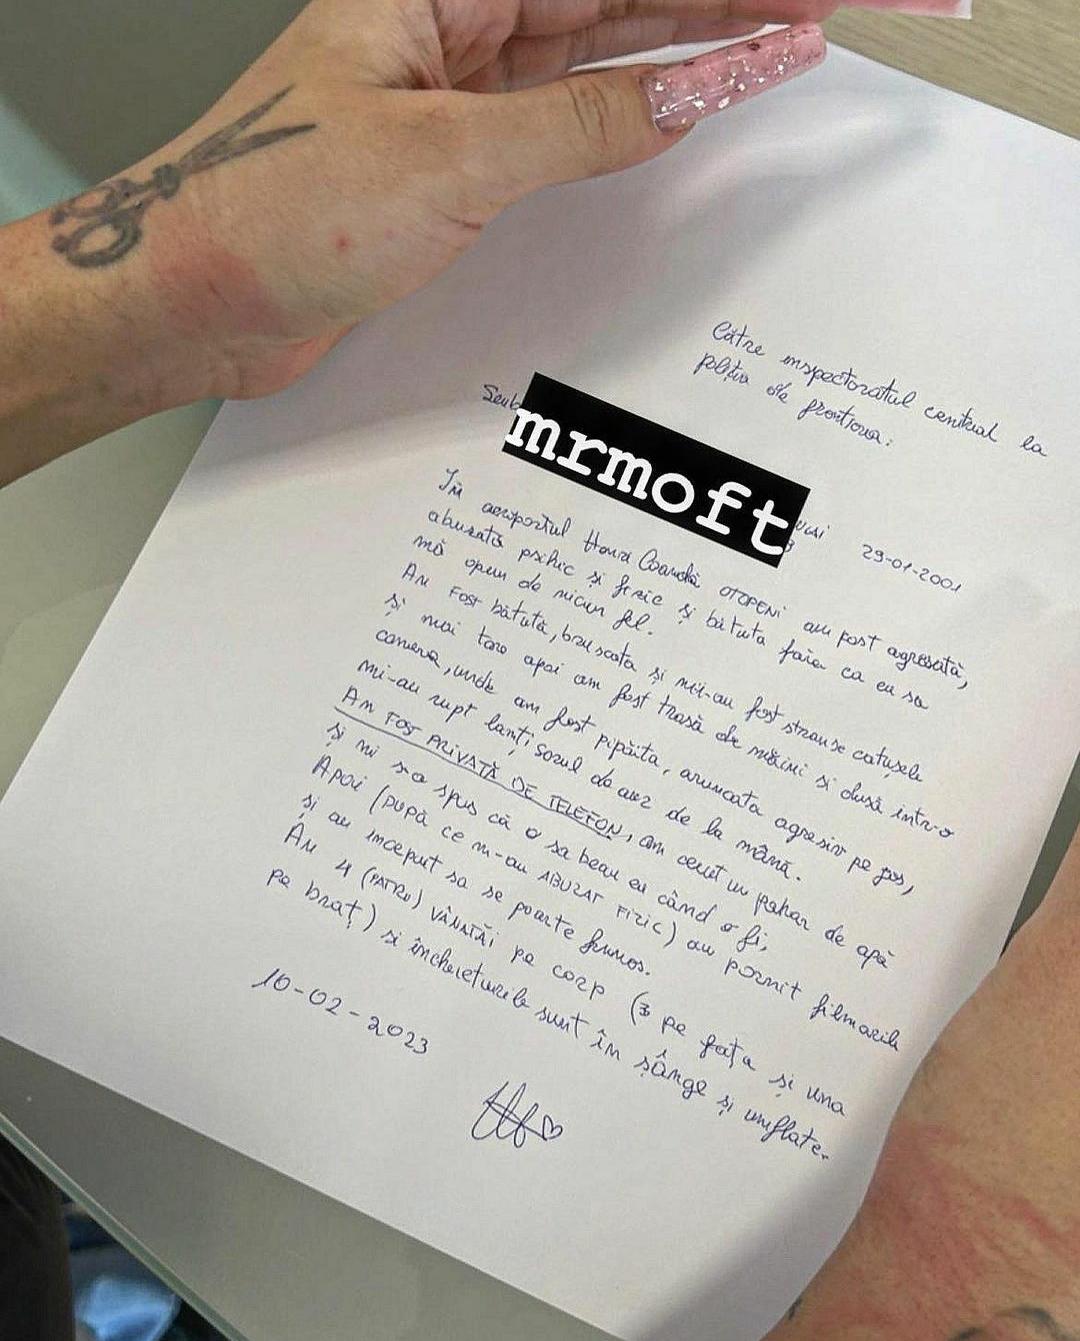 Către inspectoratul central la
poliția de frontiera:
Sub
mrmoft
29-01-2001
În aeroportul Henri Coandă OTOPENI am fost agresată,
abuzată psihic și fizic și bătuta fara ca eu sa
mă opun de niciun fel.
Am FOST bătută, bruscata și mi-au fost stranse catușele
și mai tare apoi am fost trasă de mâini si dusă intr-o
camera, unde am fost pipăita, aruncata agresiv pe jos,
mi-au rupt lanțisorul de aur de la mână.
AM FOST PRIVATĂ DE TELEFON, am cerut un pahar de apă
și mi s-a spus că o sa beau eu când o fi,
Apoi (DUPĂ CE M-au ABUZAT FIZIC) au pornit filmarile
și au inceput sa se poarte frumos.
Am 4 (PATRU) VÂNATĂi pe corp (3 pe fața și una
pe braț) si încheieturile sunt în sânge și umflate.
10-02-2023